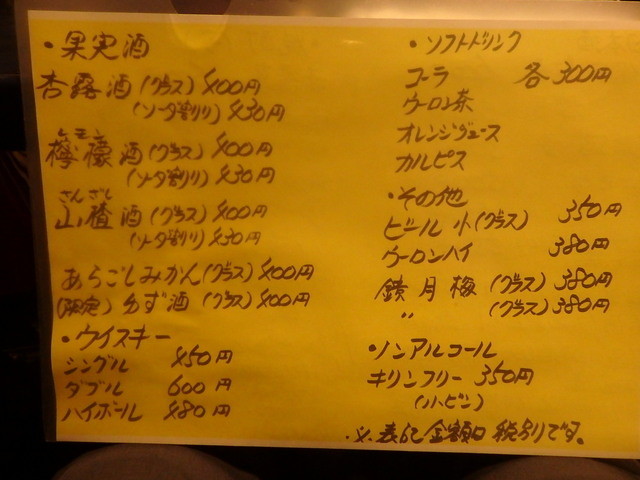 ・果実酒
杏露酒(グラス) 400円
(ソーダ割り) 430円
レモン
檸檬酒(グラス) 400円
(ソーダ割り) 430円
さんざし
山楂酒(グラス) 400円
(ソーダ割り) 430円
あらごしみかん(グラス) 400円
(限定) ゆず酒 (グラス) 400円
・ウイスキー
シングル 450円
ダブル 600円
ハイボール 480円
・ソフトドリンク
コーラ 各300円
ウーロン茶
オレンジジュース
カルピス
・その他
ビール 小(グラス) 350円
ウーロンハイ 380円
鏡月梅 (グラス) 380円
〃 (グラス) 380円
・ノンアルコール
キリンフリー 350円
(小ビン)
・※表記金額は税別りです。